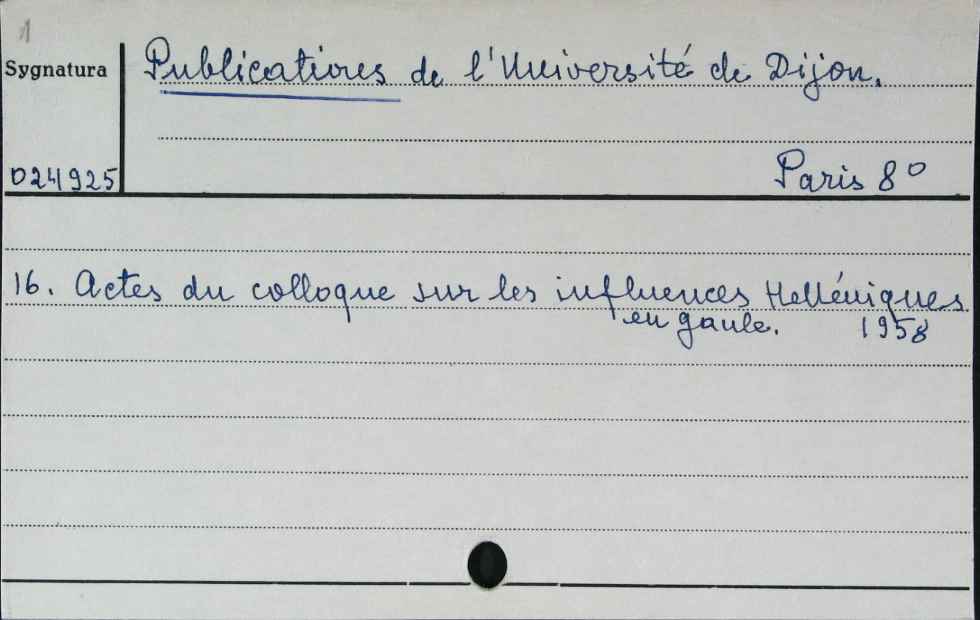 1
Sygnatura
Publications de l'Université de Dijon.
D241925
Paris 8°
16. Actes du colloque sur les influences Helléniques
en gaule. 1958